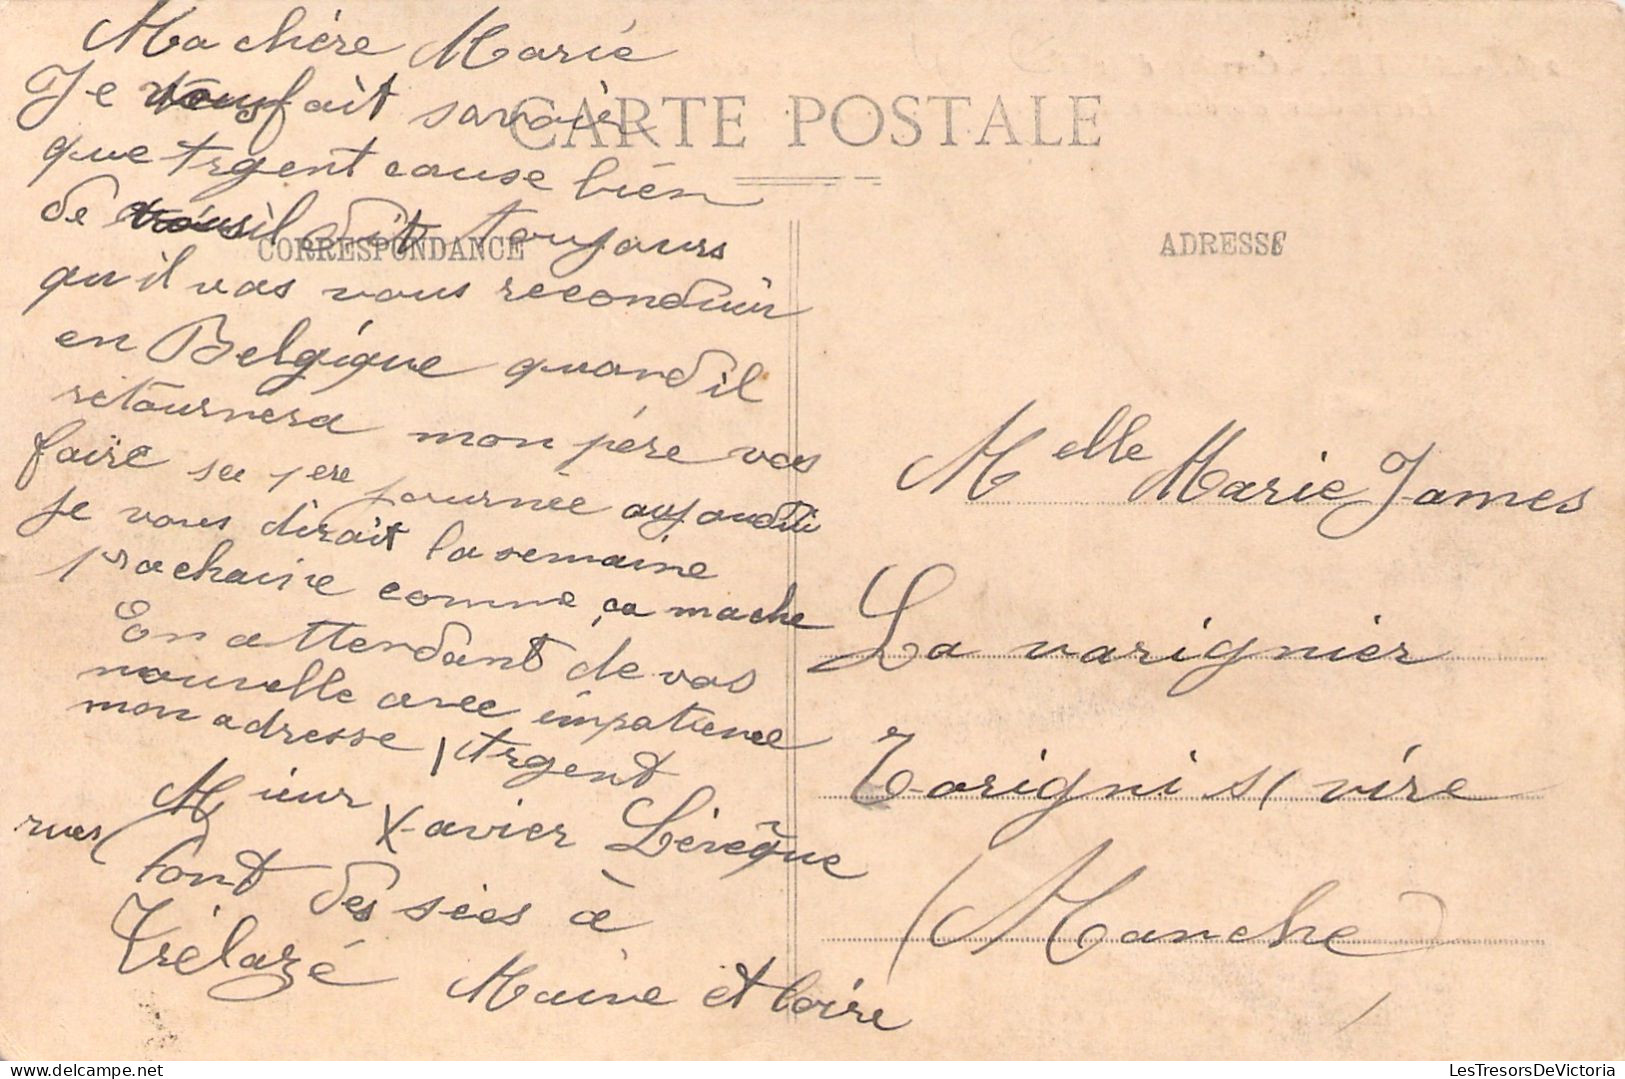 CARTE POSTALE
CORRESPONDANCE
ADRESSE
Ma chère Marie
Je vous fait savoir
que Argent cause bien
de vous il dit toujours
qu il vas vous reconduir
en Belgique quand il
retournera mon père vas
faire sa 1ere journée
je vous dirait la semaine
prochaine comme ça mache
En attendant de vos
nouvelle avec impatience
mon adresse, Argent
Mieur Xavier Lévêque
rues font des sées à
Trélazé Maine et loire
Melle Marie James
La varignier
Torigni s/ vire
(Manche)
www.LesTresorsDeVictoria.com
LesTresorsDeVictoria